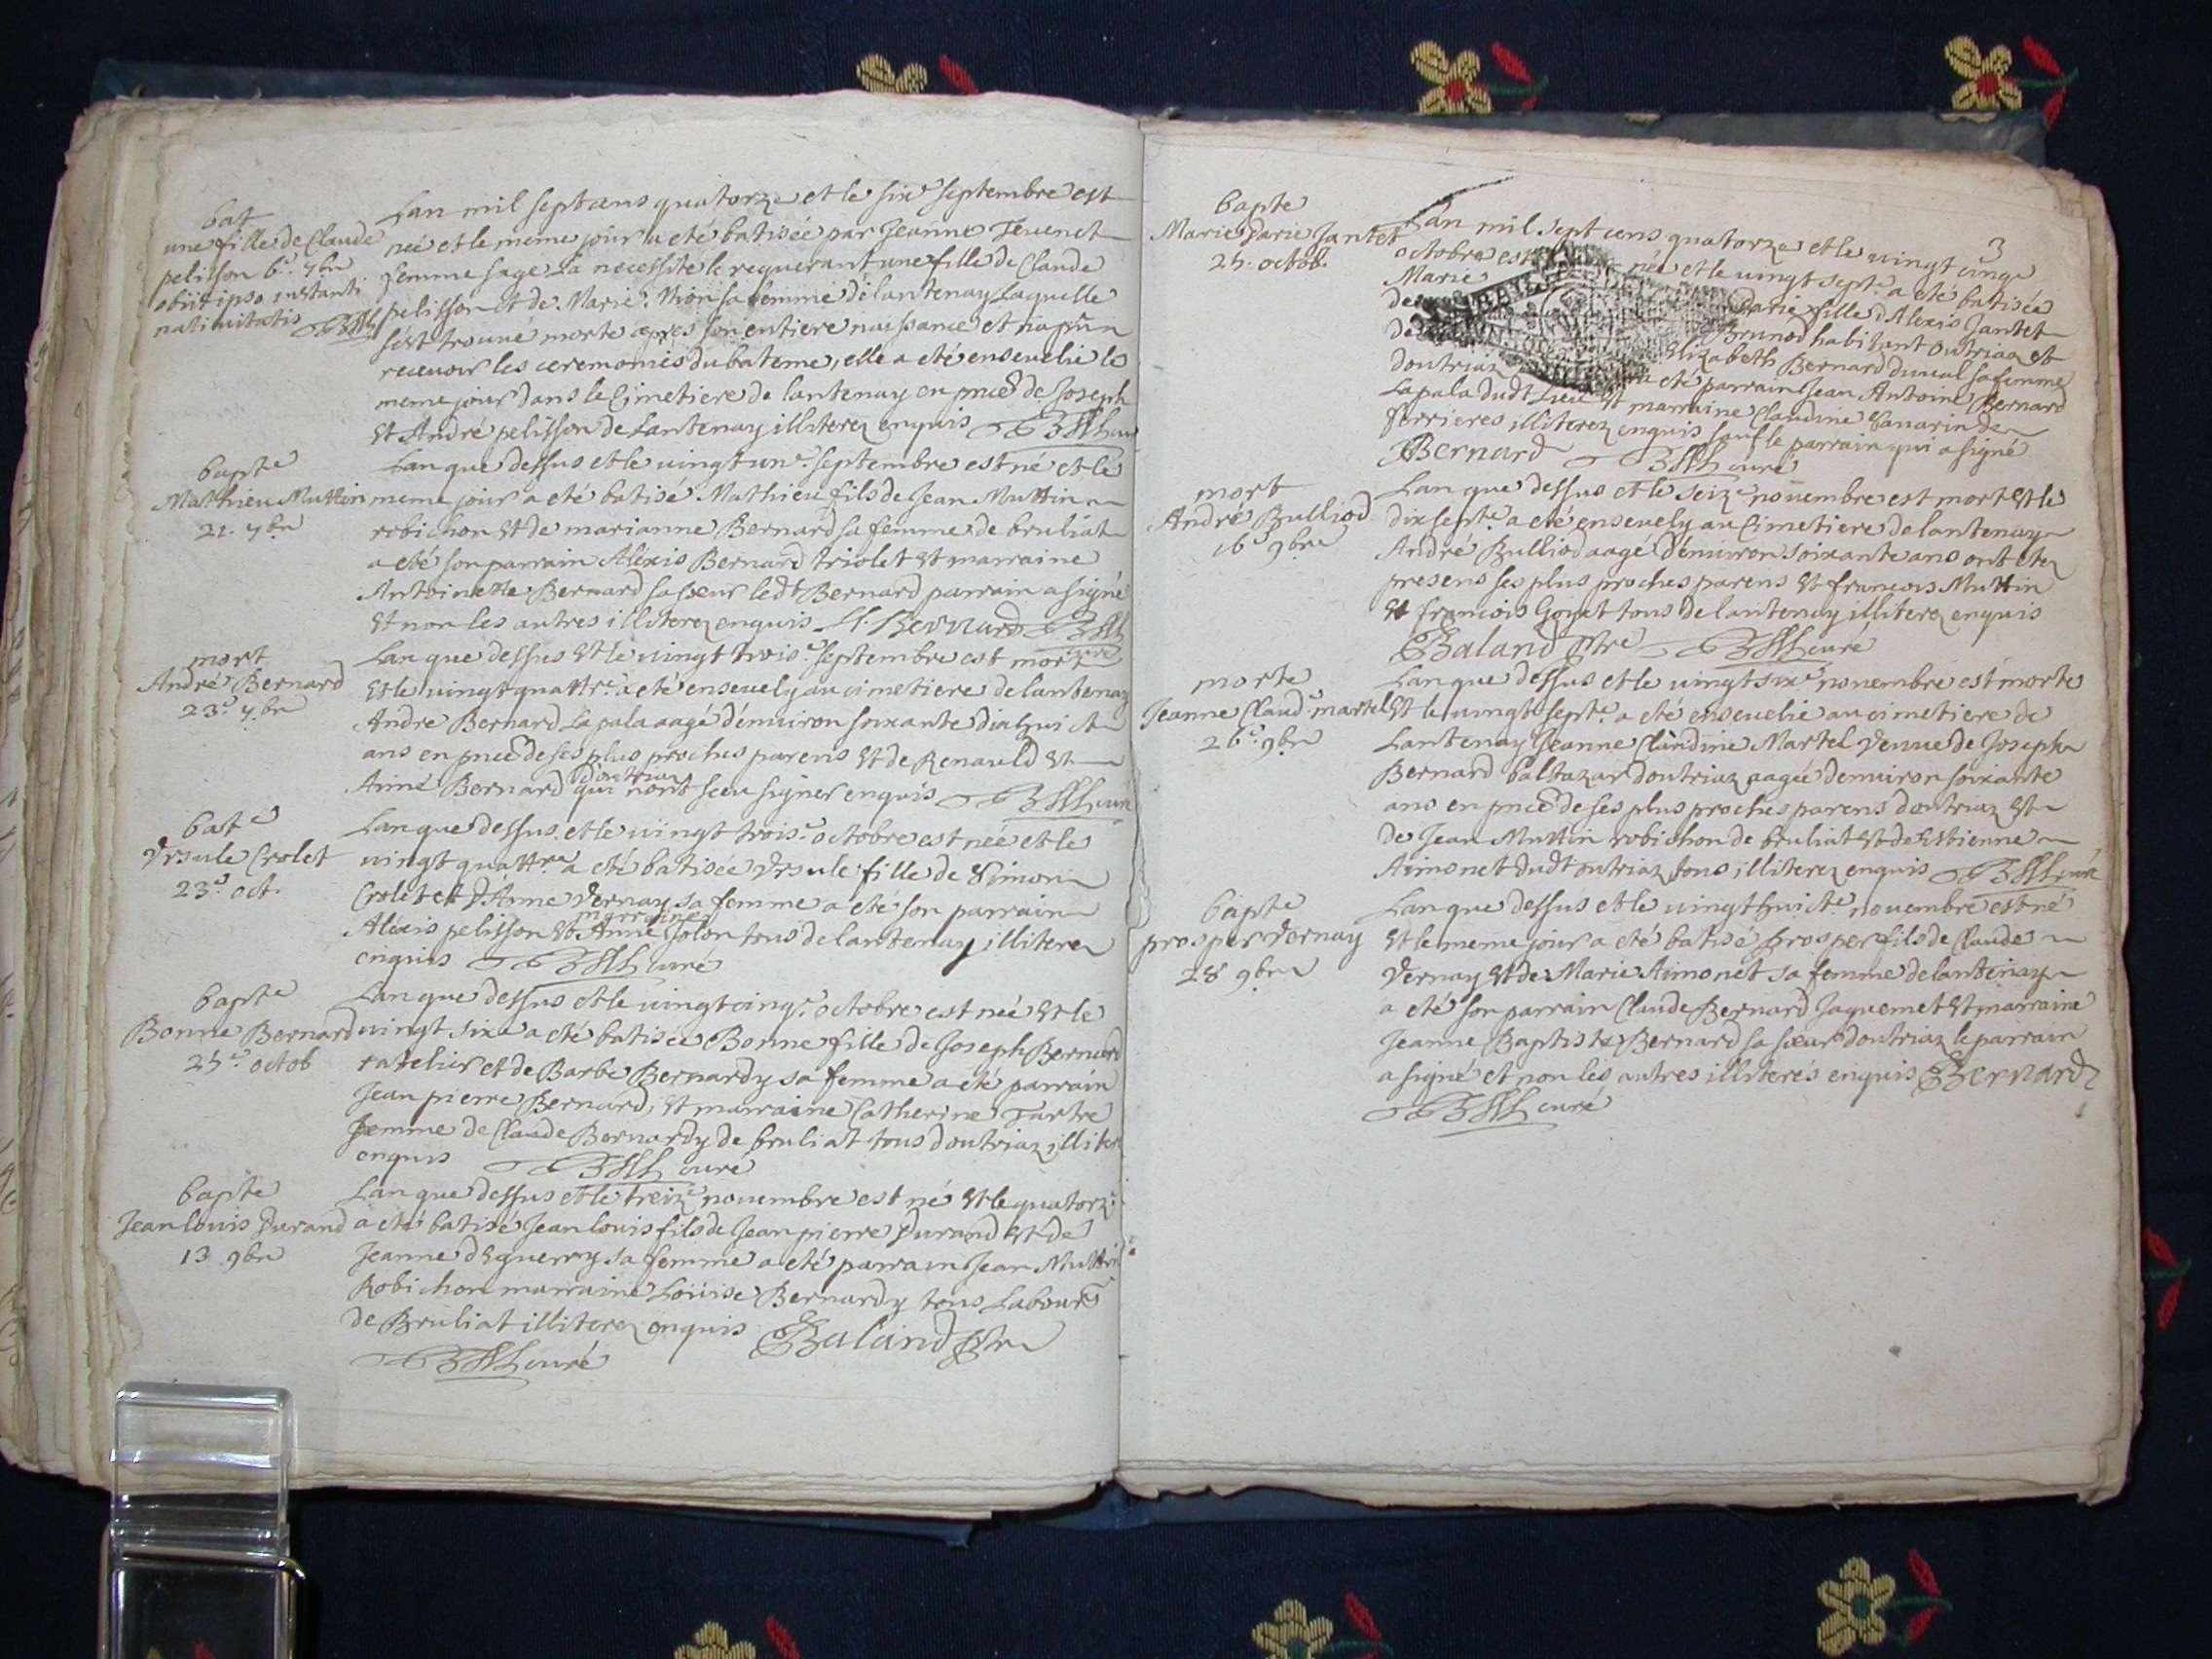 bat
une fille de Claude
pelisson 6e 7bre
obiit ipso instanti
nativitatis
Lan mil sept cens quatorze et le sixe septembre est
née et le meme jour a eté batisée par Jeanne Tenenet
femme sage la necessité le requerant une fille de Claude
pelisson et de Marie Nion sa femme de lantenay laquelle
sést trouvé morte apres son entiere naissance et na pu
recevoir les ceremonies du bateme, elle a eté ensevelie le
meme jour dans le Cimetiere de lantenay en pnce de Joseph
et André pelisson de Lantenay illiterez enquis
bapte
Mathieu Muttin
21. 7bre
Lan que dessus et le vingt une septembre est né et le
meme jour a eté batisé Mathieu fils de Jean Muttin
robichon et de marianne Bernard sa femme de bruliat
a eté son parrain Aléxis Bernard triolet et marraine
Antoinette Bernard sa sœur ledt Bernard parrain a signé
et non les autres illiterez enquis A. Bernard
curé
mort
André Bernard
23e 7bre
Lan que dessus et le vingt troise septembre est mort
et le vingt quattre a eté ensevely au cimetiere de lantenay
Andre Bernard Lapala aagé dénviron soixante dix huict
ans en pnce de ses plus proches parens et de Renauld et
Aimé Bernard doutriaz qui nont sceu signer enquis curé
bate
Ursule Crolet
23e oct.
Lan que dessus et le vingt troise octobre est née et le
vingt quattre a eté batisée Ursule fille de Simon
Crolet et d'Anne Vernay sa femme a eté son parrain
Aléxis pelisson et marraine Anne Jolon tous de lantenay illiterez
enquis curé
bapte
Bonne Bernard
25e octob
Lan que dessus et le vingt cinqe octobre est née et le
vingt sixe a eté batisée Bonne fille de Joseph Bernard
ratelier et de Barbe Bernardy sa femme a eté parrain
Jean pierre Bernard, et marraine Catherine Tartre
femme de Claude Bernardy de bruliat tous doutriaz illiter
enquis curé
bapte
Jean louis Durand
13 9bre
Lan que dessus et le treize novembre est né et le quatorze
a eté batisé Jean louis fils de Jean pierre Durand et de
Jeanne dEguerry sa femme a eté parrain Jean Muttin
Robichon marraine Loüise Bernardy tous Labours
de Bruliat illiterez enquis Baland ptre
curé
3
bapte
Marie Darie Jantet
25. octob.
Lan mil sept cens quatorze et le vingt cinqe
octobre est née et le vingt septe a eté batisée
Marie Darie fille d'Alexis Jantet
de Brunod habitant Outriaz et
de Elizabeth Bernard duval sa femme
doutriaz a eté parrain Jean Antoine Bernard
Lapala dudt Lieu et marraine Claudine Canarin de
ferrieres illiterez enquis sauf le parrain qui a signé
Bernard curé
mort
André Bulliod
16e 9bre
Lan que dessus et le seize novembre est mort et le
dix septe a eté ensevely au Cimetiere de lantenay
André Bulliod aagé dénviron soixante ans ont etez
presens ses plus proches parens et francois Muttin
et francois Goyet tous de lantenay illiterez enquis
Baland ptre curé
morte
Jeanne Claude martel
26e 9bre
Lan que dessus et le vingt sixe novembre est morte
et le vingt septe a eté ensevelie au cimetiere de
Lantenay Jeanne Claudine Martel Veuve de Joseph
Bernard baltazar doutriaz aagée denviron soixante
ans en pnce de ses plus proches parens doutriaz et
de Jean Muttin robichon de bruliat et de Estienne
Aimonet dudt outriaz tous illiterez enquis curé
bapte
prosper Vernay
28 9bre
Lan que dessus et le vingt huicte novembre est né
et le meme jour a eté batisé prosper fils de Claude
Vernay et de Marie Aimonet sa femme de lantenay
a eté son parrain Claude Bernard Jaquemet et marraine
Jeanne Baptiste Bernard sa sœur doutriaz le parrain
a signé et non les autres illiterés enquis Bernard
curé